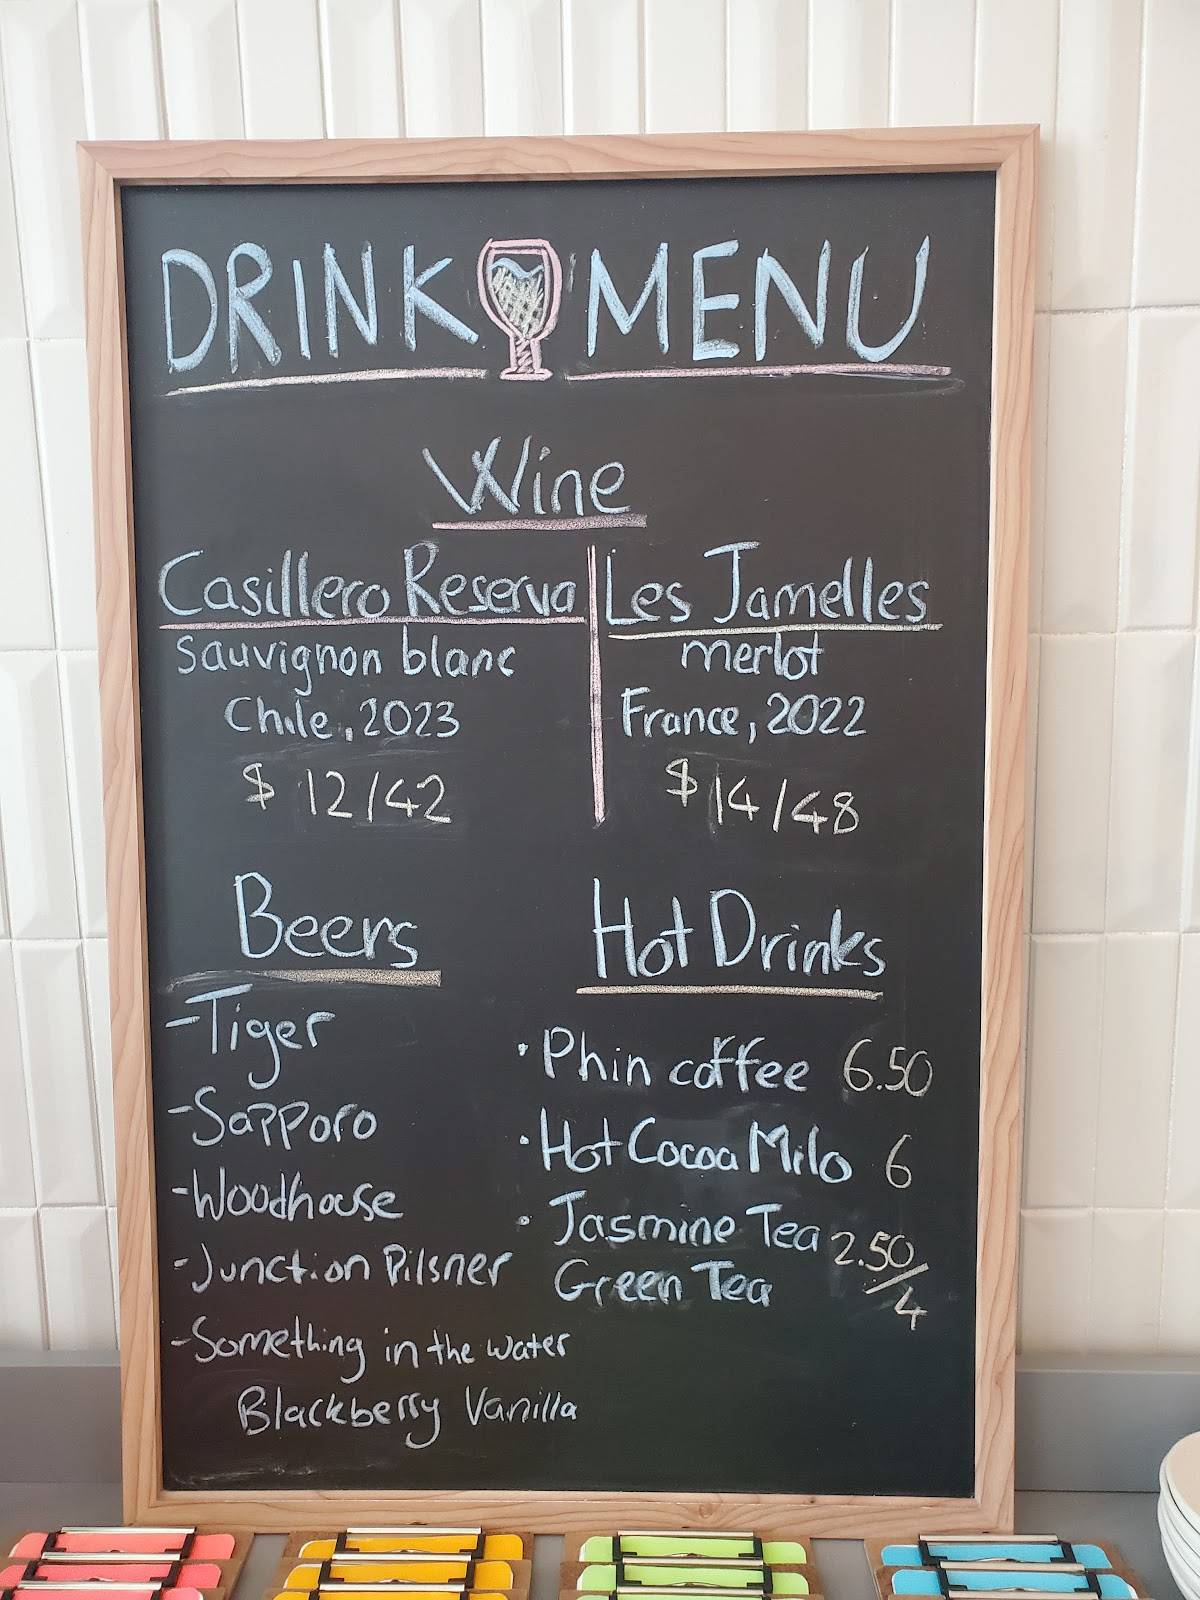 DRINK MENU
Wine
Casillero Reserva
Sauvignon blanc
Chile, 2023
$ 12/42
Les Jamelles
merlot
France, 2022
$ 14/48
Beers
-Tiger
-Sapporo
-Woodhouse
-Junction Pilsner
-Something in the water
Blackberry Vanilla
Hot Drinks
· Phin coffee 6.50
· Hot Cocoa Milo 6
· Jasmine Tea 2.50/4
Green Tea